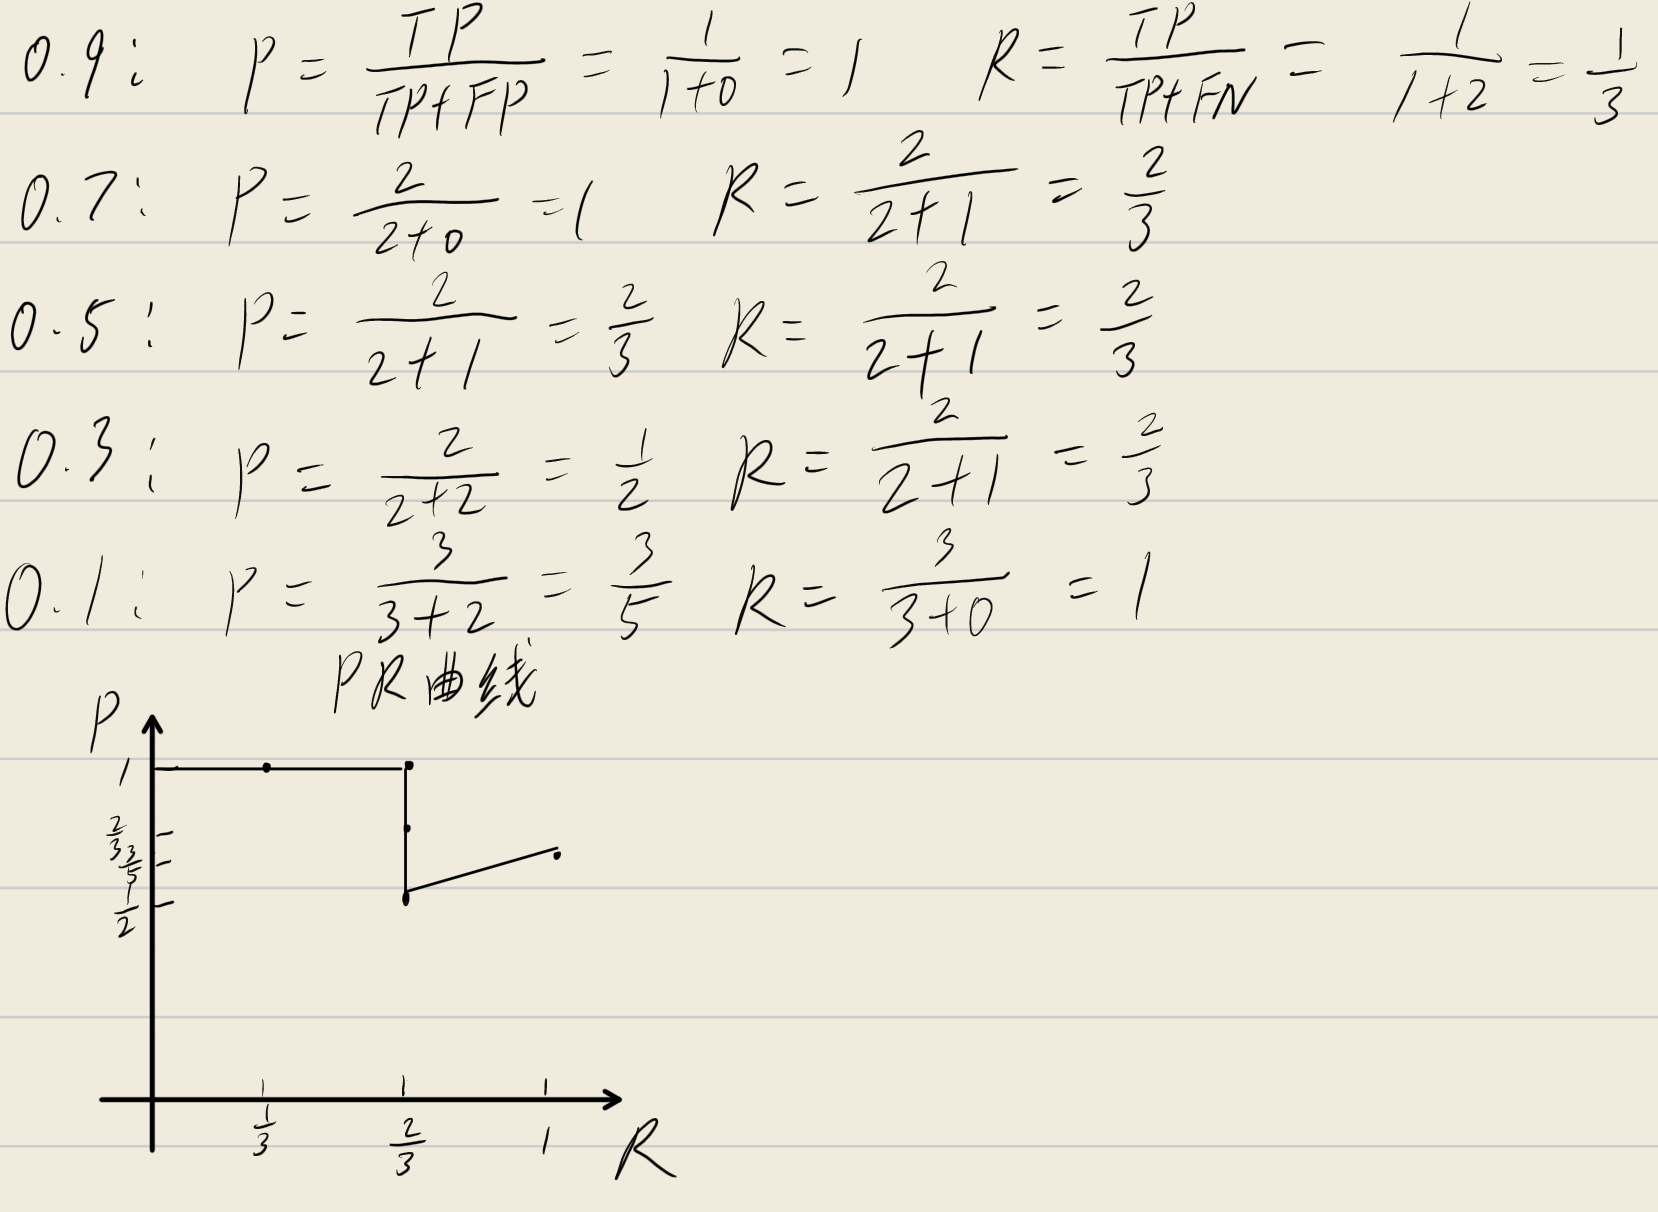 0.9: P = TP/(TP+FP) = 1/(1+0) = 1 R = TP/(TP+FN) = 1/(1+2) = 1/3
0.7: P = 2/(2+0) = 1 R = 2/(2+1) = 2/3
0.5: P = 2/(2+1) = 2/3 R = 2/(2+1) = 2/3
0.3: P = 2/(2+2) = 1/2 R = 2/(2+1) = 2/3
0.1: P = 3/(3+2) = 3/5 R = 3/(3+0) = 1
PR曲线
P
1
2/3
3/5
1/2
1/3 2/3 1 R